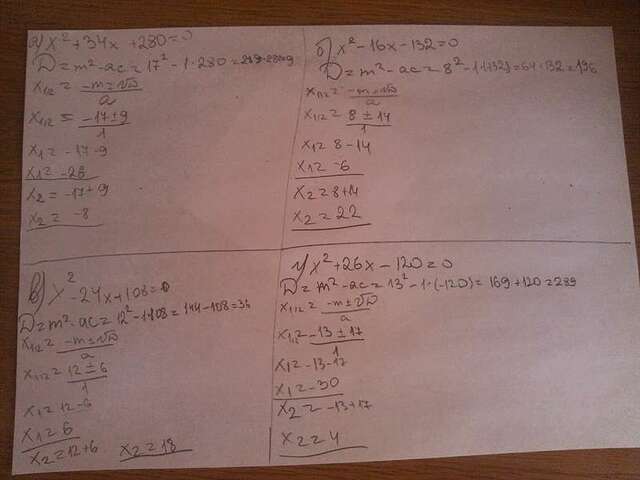 а) x²+34x+280=0
D=m²-ac=17²-1·280=289-280=9
x₁,₂=-m±√D/a
x₁,₂=-17±9/1
x₁=-17-9
x₁=-26
x₂=-17+9
x₂=-8
б) x²-16x-132=0
D=m²-ac=8²-1·(-132)=64+132=196
x₁,₂=-m±√D/a
x₁,₂=8±14/1
x₁=8-14
x₁=-6
x₂=8+14
x₂=22
в) x²-24x+108=0
D=m²-ac=12²-1·108=144-108=36
x₁,₂=-m±√D/a
x₁,₂=12±6/1
x₁=12-6
x₁=6
x₂=12+6 x₂=18
г) x²+26x-120=0
D=m²-ac=13²-1·(-120)=169+120=289
x₁,₂=-m±√D/a
x₁,₂=-13±17/1
x₁=-13-17
x₁=-30
x₂=-13+17
x₂=4